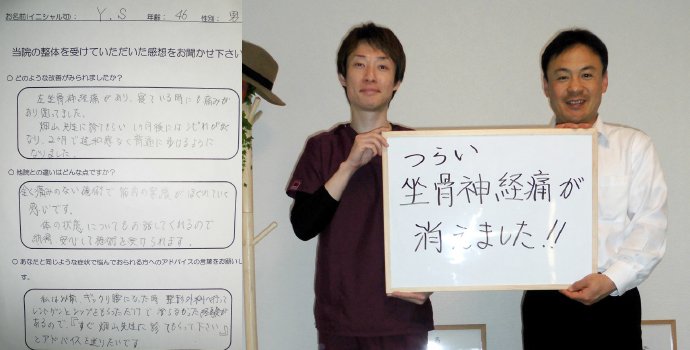 お名前(イニシャル可): Y.S 年齢: 46 性別: 男
当院の整体を受けていただいた感想をお聞かせ下さい
○ どのような改善がみられましたか?
左坐骨神経痛があり、寝ている時にも痛みが
あり困ってました。
畑山先生に診てもらい1ヶ月後にはしびれがなく
なり、2ヶ月で違和感なく普通に歩けるように
なりました。
○ 他院との違いはどんな点ですか?
全く痛みのない施術で筋肉の緊張がほぐれていく
感じです。
体の状態についてもお話してくれるので
安心して施術を受けられます。
○ あなたと同じような症状で悩んでおられる方へのアドバイスの言葉をお願いし
ます。
私は以前、ぎっくり腰になった時 整形外科へ行って
レントゲンとシップをもらっただけで治らなかった経験が
あるので、『すぐ畑山先生に診てもらって下さい』
とアドバイスを送りたいです
つらい
坐骨神経痛が
消えました!!